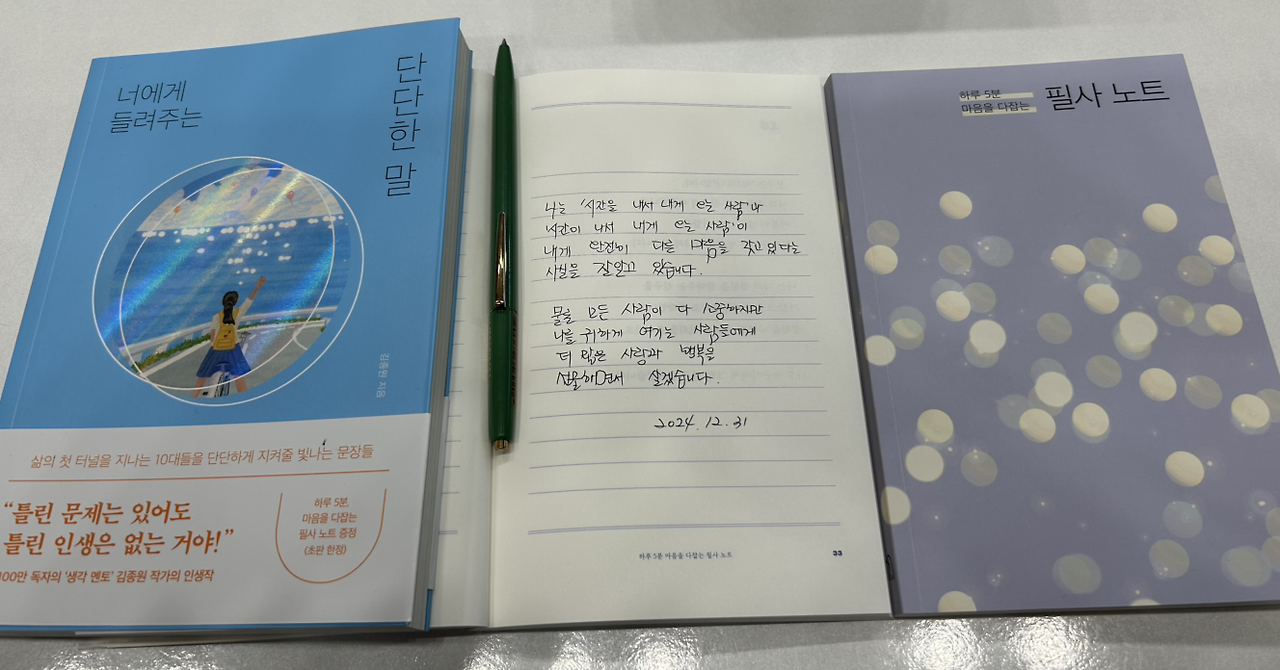 너에게
들려주는
단단한 말
김종원 지음
삶의 첫 터널을 지나는 10대들을 단단하게 지켜줄 빛나는 문장들
“틀린 문제는 있어도
틀린 인생은 없는 거야!”
100만 독자의 ‘생각 멘토’ 김종원 작가의 인생작
하루 5분,
마음을 다잡는
필사 노트 증정
(초판 한정)
나는 '시간을 내서 내게 오는 사람'과
시간이 나서 내게 오는 사람'이
내게 완전히 다른 마음을 갖고 있다는
사실을 잘 알고 있습니다.
물론 모든 사람이 다 소중하지만
나를 귀하게 여기는 사람들에게
더 많은 사랑과 행복을
선물하면서 살겠습니다.
2024. 12. 31
하루 5분 마음을 다잡는 필사 노트
33
하루 5분
마음을 다잡는
필사 노트